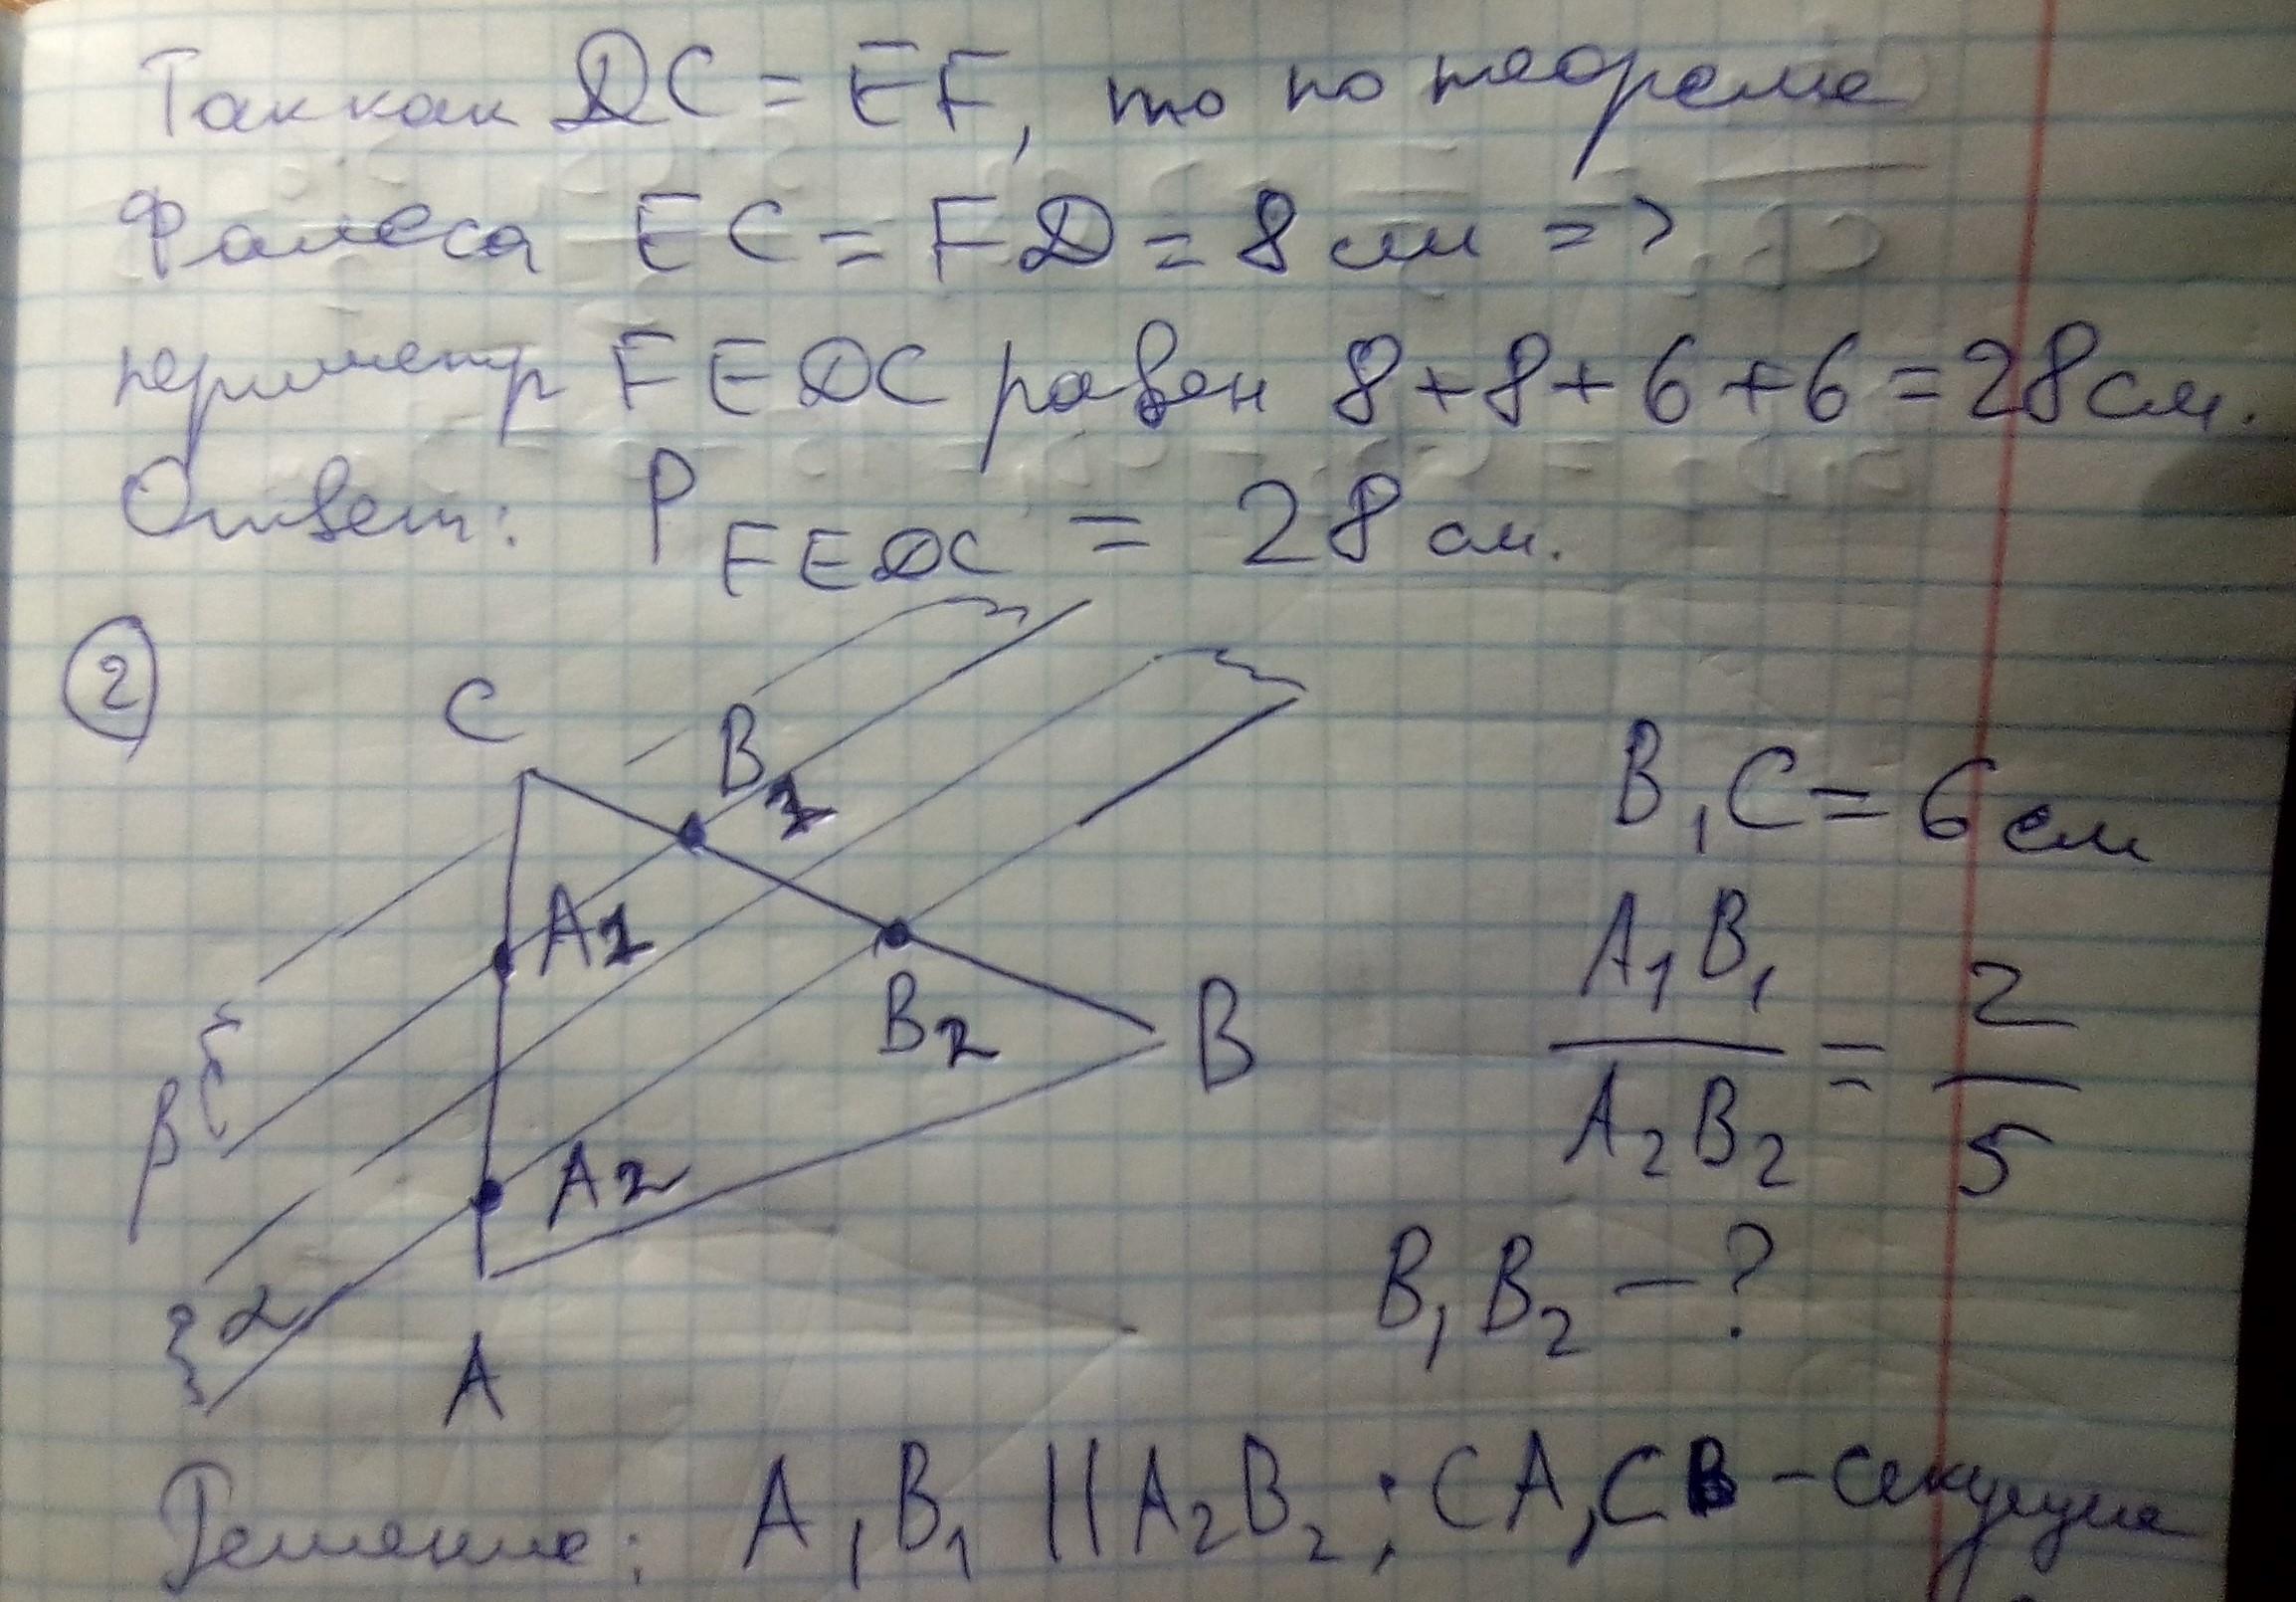 Так как DC = EF, то по теореме
Фалеса EC = FD = 8 см =>
периметр FEDC равен 8+8+6+6=28см.
Ответ: P FEDC = 28 см.
2
C
B1
B1C = 6 см
A1
A1B1
2
B2
B
=
β
A2B2
5
A2
α
B1B2 – ?
A
Решение: A1B1 || A2B2; CA, CB – секущие